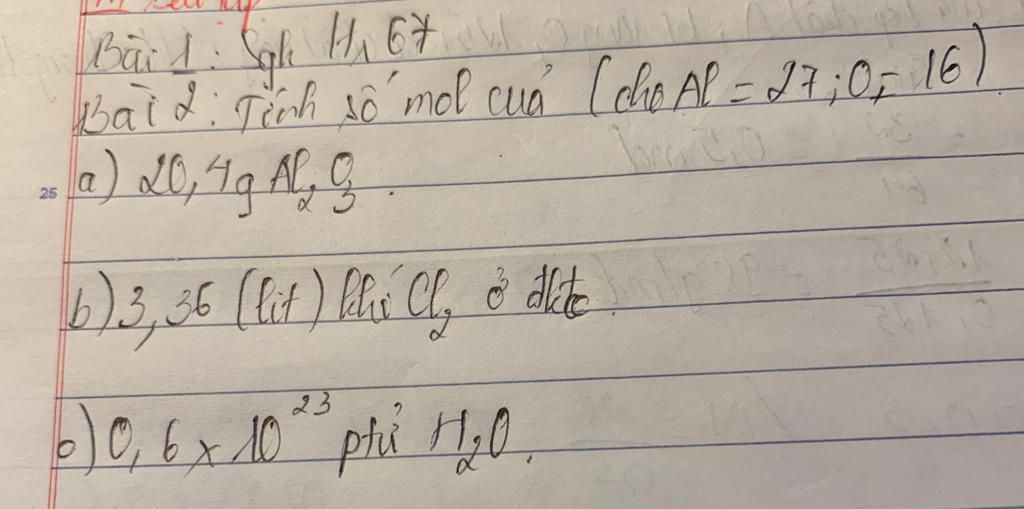 Bài 1: Sgk Tr 67
Bài 2: Tính số mol của (cho Al = 27; O = 16)
25 a) 20,4g Al₂O₃.
b) 3,36 (lít) khí Cl₂ ở đktc.
c) 0,6 x 10²³ ptử H₂O.